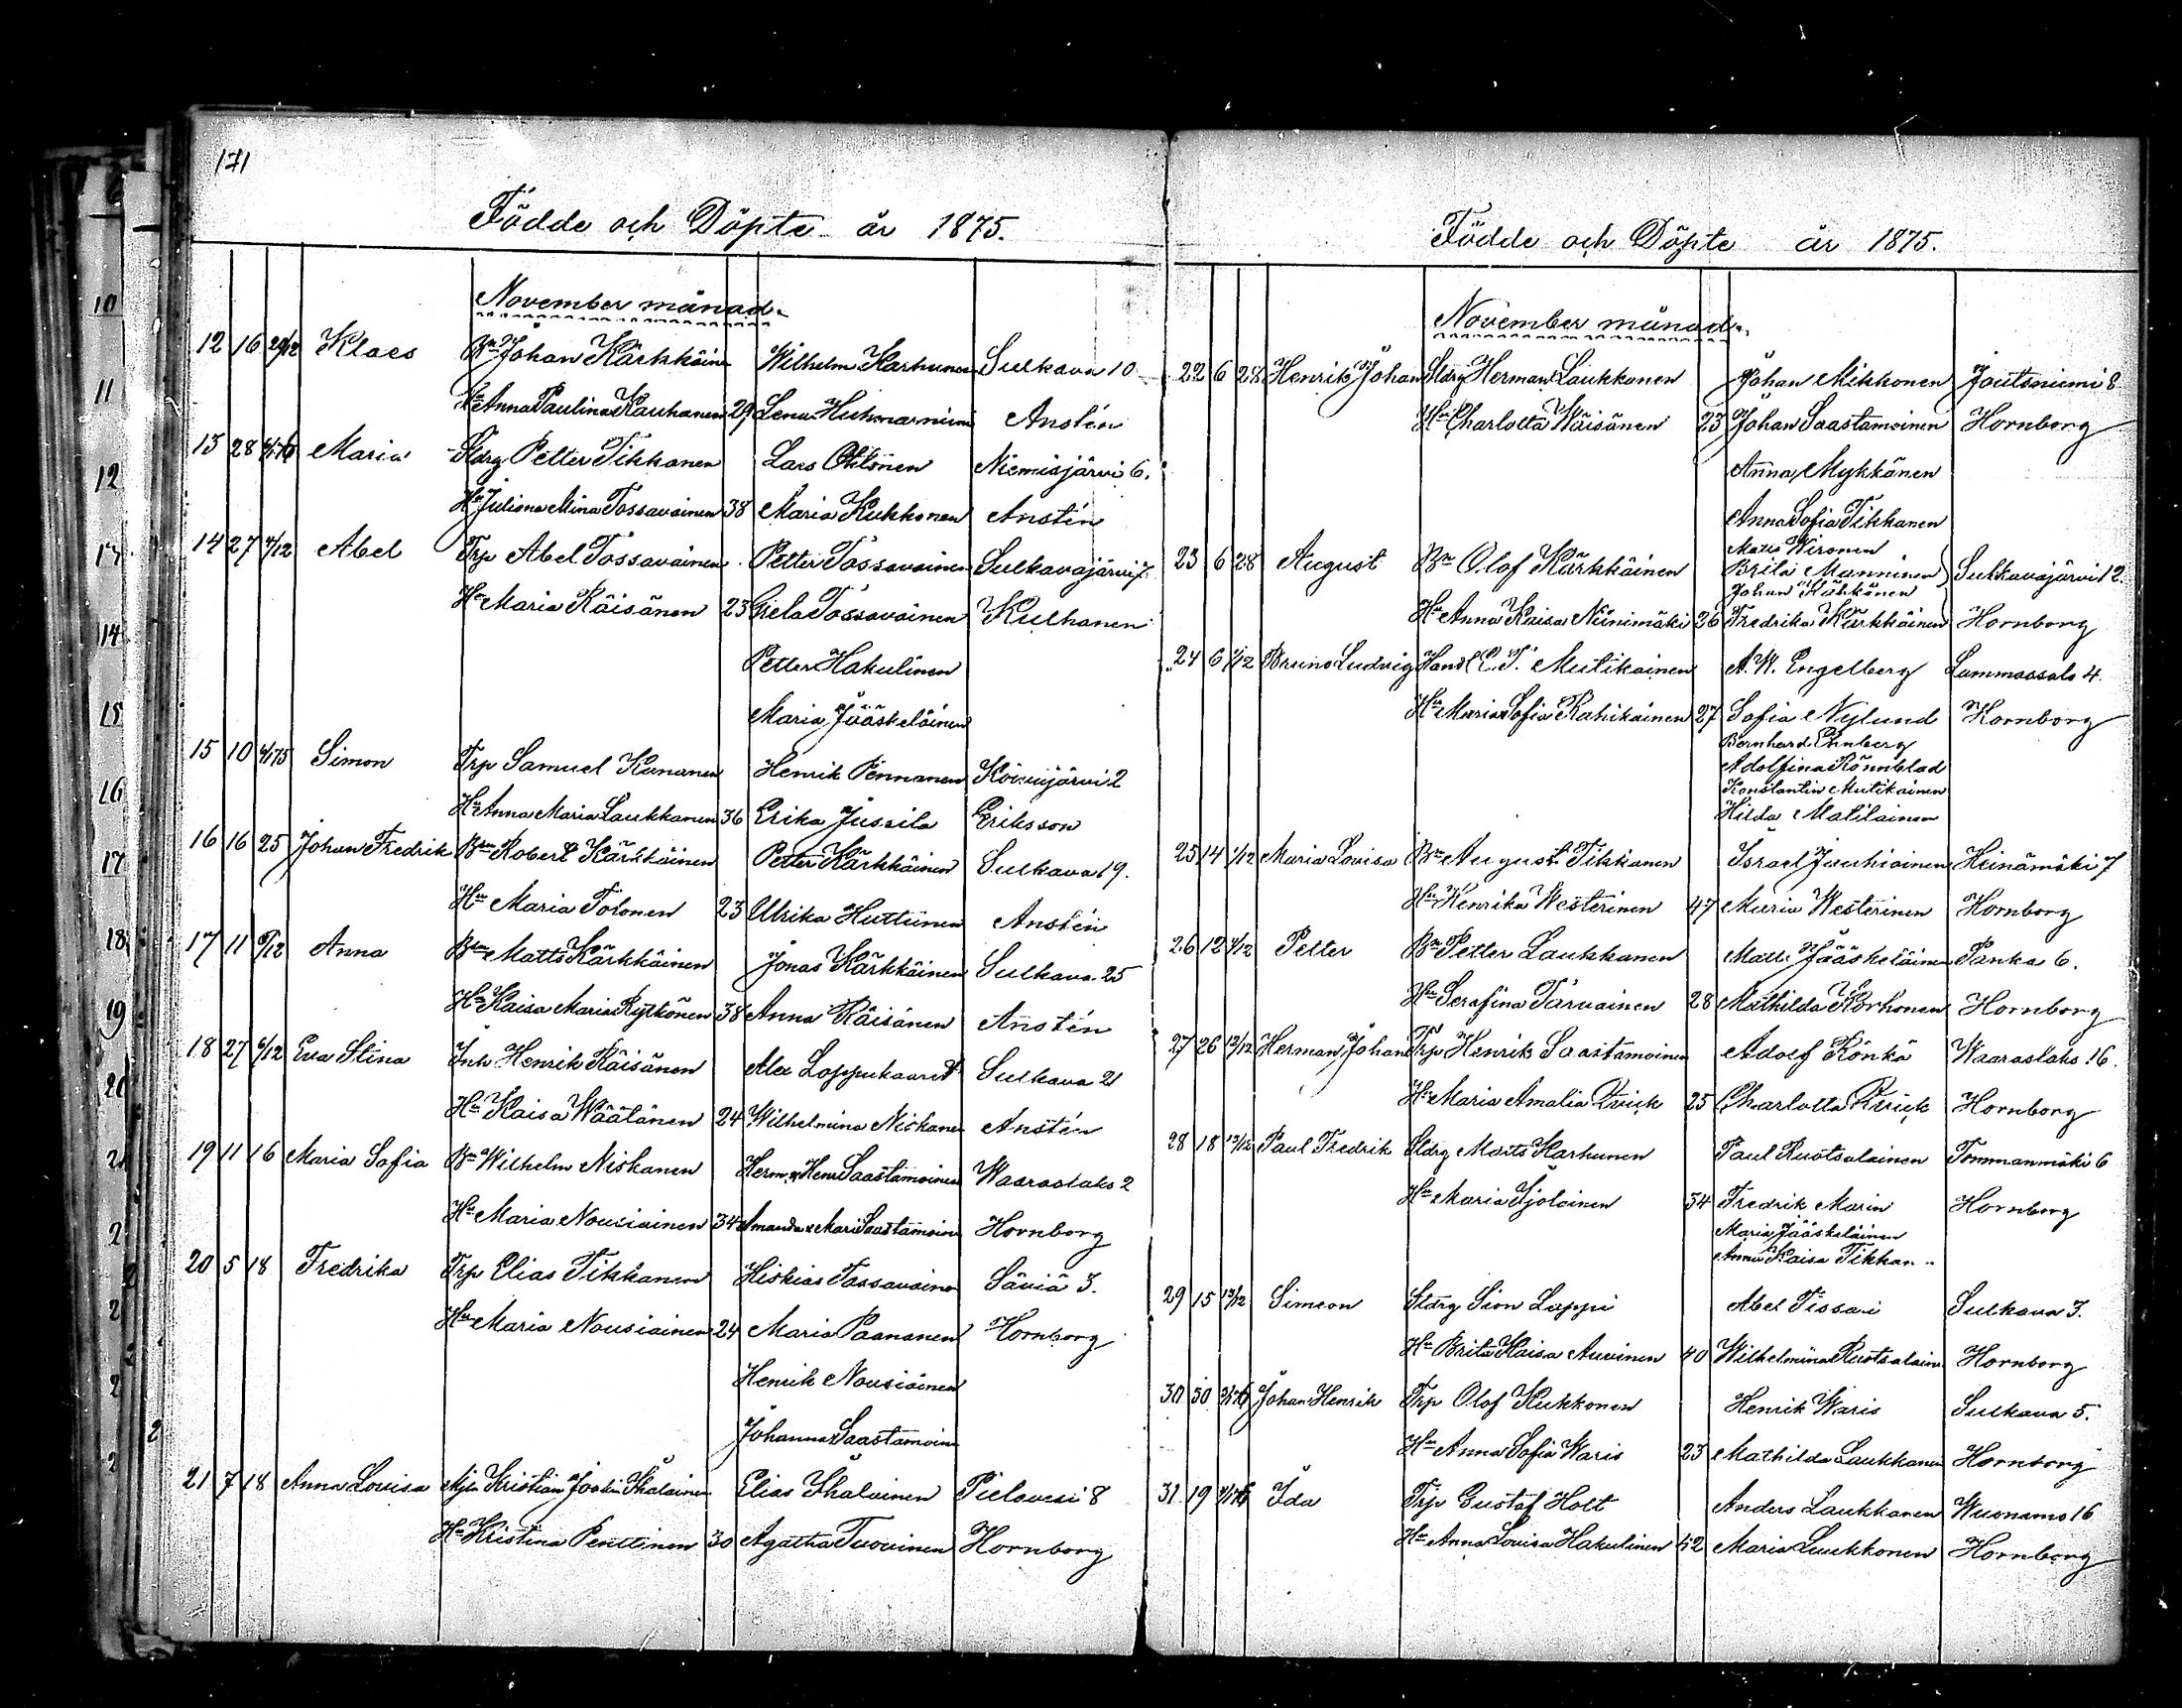 171
Födde och Döpte år 1875.
November månad.
12 16 29/12 Klaes Bn Johan Kärkkäine Wilhelm Karhunen Sulkava 10
Hu Anna Paulina Kauhanen 29 Lena Huhmarniemi Anstén
13 28 Maria Sldrg Petter Tikkanen Lars Ollonen Niemisjärvi 6.
Hu Juliana Mina Tossavainen 38 Maria Kukkonen Anstén
14 27 4/12 Abel Trp Abel Tossavainen Petter Tossavainen Sulkavajärvi 7
Hu Maria Räisänen 23 Giela Tossavainen Kulhanen
Petter Hakulinen
Maria Jääskeläinen
15 10 Simon Trp Samuel Kananen Henrik Pennanen Koivujärvi 2
Hu Anna Maria Laukkanen 36 Erika Jussila Eriksson
16 16 25 Johan Fredrik Bn Robert Kärkkäinen Petter Kärkkäinen Sulkava 19.
Hu Maria Tolonen 23 Ulrika Huttunen Anstén
17 11 5/12 Anna Bn Matts Kärkkäinen Jonas Kärkkäinen Sulkava 25
Hu Kaisa Maria Rytkönen 38 Anna Räisänen Anstén
18 27 6/12 Eva Stina Inh Henrik Räisänen Alex Loppukaaret Sulkava 21
Hu Kaisa Väätänen 24 Wilhelmina Niskane Anstén
19 11 16 Maria Sofia Bn Wilhelm Niskanen Herm. & Henr Saastamoinen Waaraslaks 2
Hu Maria Nousiainen 34 Amanda & Mari Saastamoin Hornborg
20 5 18 Fredrika Trp Elias Tikkanen Hiskias Tossavaine Säviä 3.
Hu Maria Nousiainen 24 Maria Paananen Hornborg
Henrik Nousiainen
Johanna Saastamoin
21 7 18 Anna Louisa Kristian Joakim Ihalainen Elias Ihalainen Pielavesi 8
Hu Kristina Penttinen 30 Agatha Tuovinen Hornborg
Födde och Döpte år 1875.
November månad.
22 6 28 Henrik Johan Sldrg Herman Laukkanen Johan Mikkonen Joutsniemi 8
Hu Charlotta Väisänen 23 Johan Saastamoinen Hornborg
Anna Mykkänen
Anna Sofia Tikkanen
Matts Wironen
23 6 28 August Bn Olof Kärkkäinen Brita Manninen Sulkavajärvi 12
Johan Kähkönen
Hu Anna Kaisa Niinimäki 26 Fredrika Kärkkäinen Hornborg
24 6 1/12 Bruno Ludvig Handl C. F. Mutikainen A. W. Engelberg Lammassalo 4.
Hu Maria Sofia Rahikainen 27 Sofia Nylund Hornborg
Bernhard Ehnberg
Adolfina Rönnblad
Konstantin Mutikainen
Hilda Matilainen
25 14 1/12 Maria Lovisa Bn August Tikkanen Israel Jauhiainen Heinämäki 7
Hu Henrika Westerinen 47 Maria Westerinen Hornborg
26 12 4/12 Petter Bn Petter Laukkanen Matts Jääskeläinen Panka 6.
Hu Serafina Tarvainen 28 Mathilda Korhonen Hornborg
27 26 12/12 Herman Johan Trp Henrik Saastamoinen Adolf Könkä Waaraslaks 16.
Hu Maria Amalia Qvick 25 Charlotta Qvick Hornborg
28 18 12/12 Paul Fredrik Sldrg Matts Karhunen Paul Ruotsalainen Tommanmäki 6
Hu Maria Tjolainen 34 Fredrik Marin Hornborg
Maria Jääskeläinen
Anna Kaisa Tikkan
29 15 12/12 Simeon Sldrg Sion Lappi Abel Tissari Sulkava 3.
Hu Brita Kaisa Auvinen 40 Wilhelmina Ruotsalain Hornborg
30 30 Johan Henrik Trp Olof Kukkonen Henrik Waris Sulkava 5.
Hu Anna Sofia Waris 23 Mathilda Laukkanen Hornborg
31 19 Ida Trp Gustaf Holt Anders Laukkanen Wuonamo 16
Hu Anna Lovisa Hakulinen 42 Maria Laukkonen Hornborg